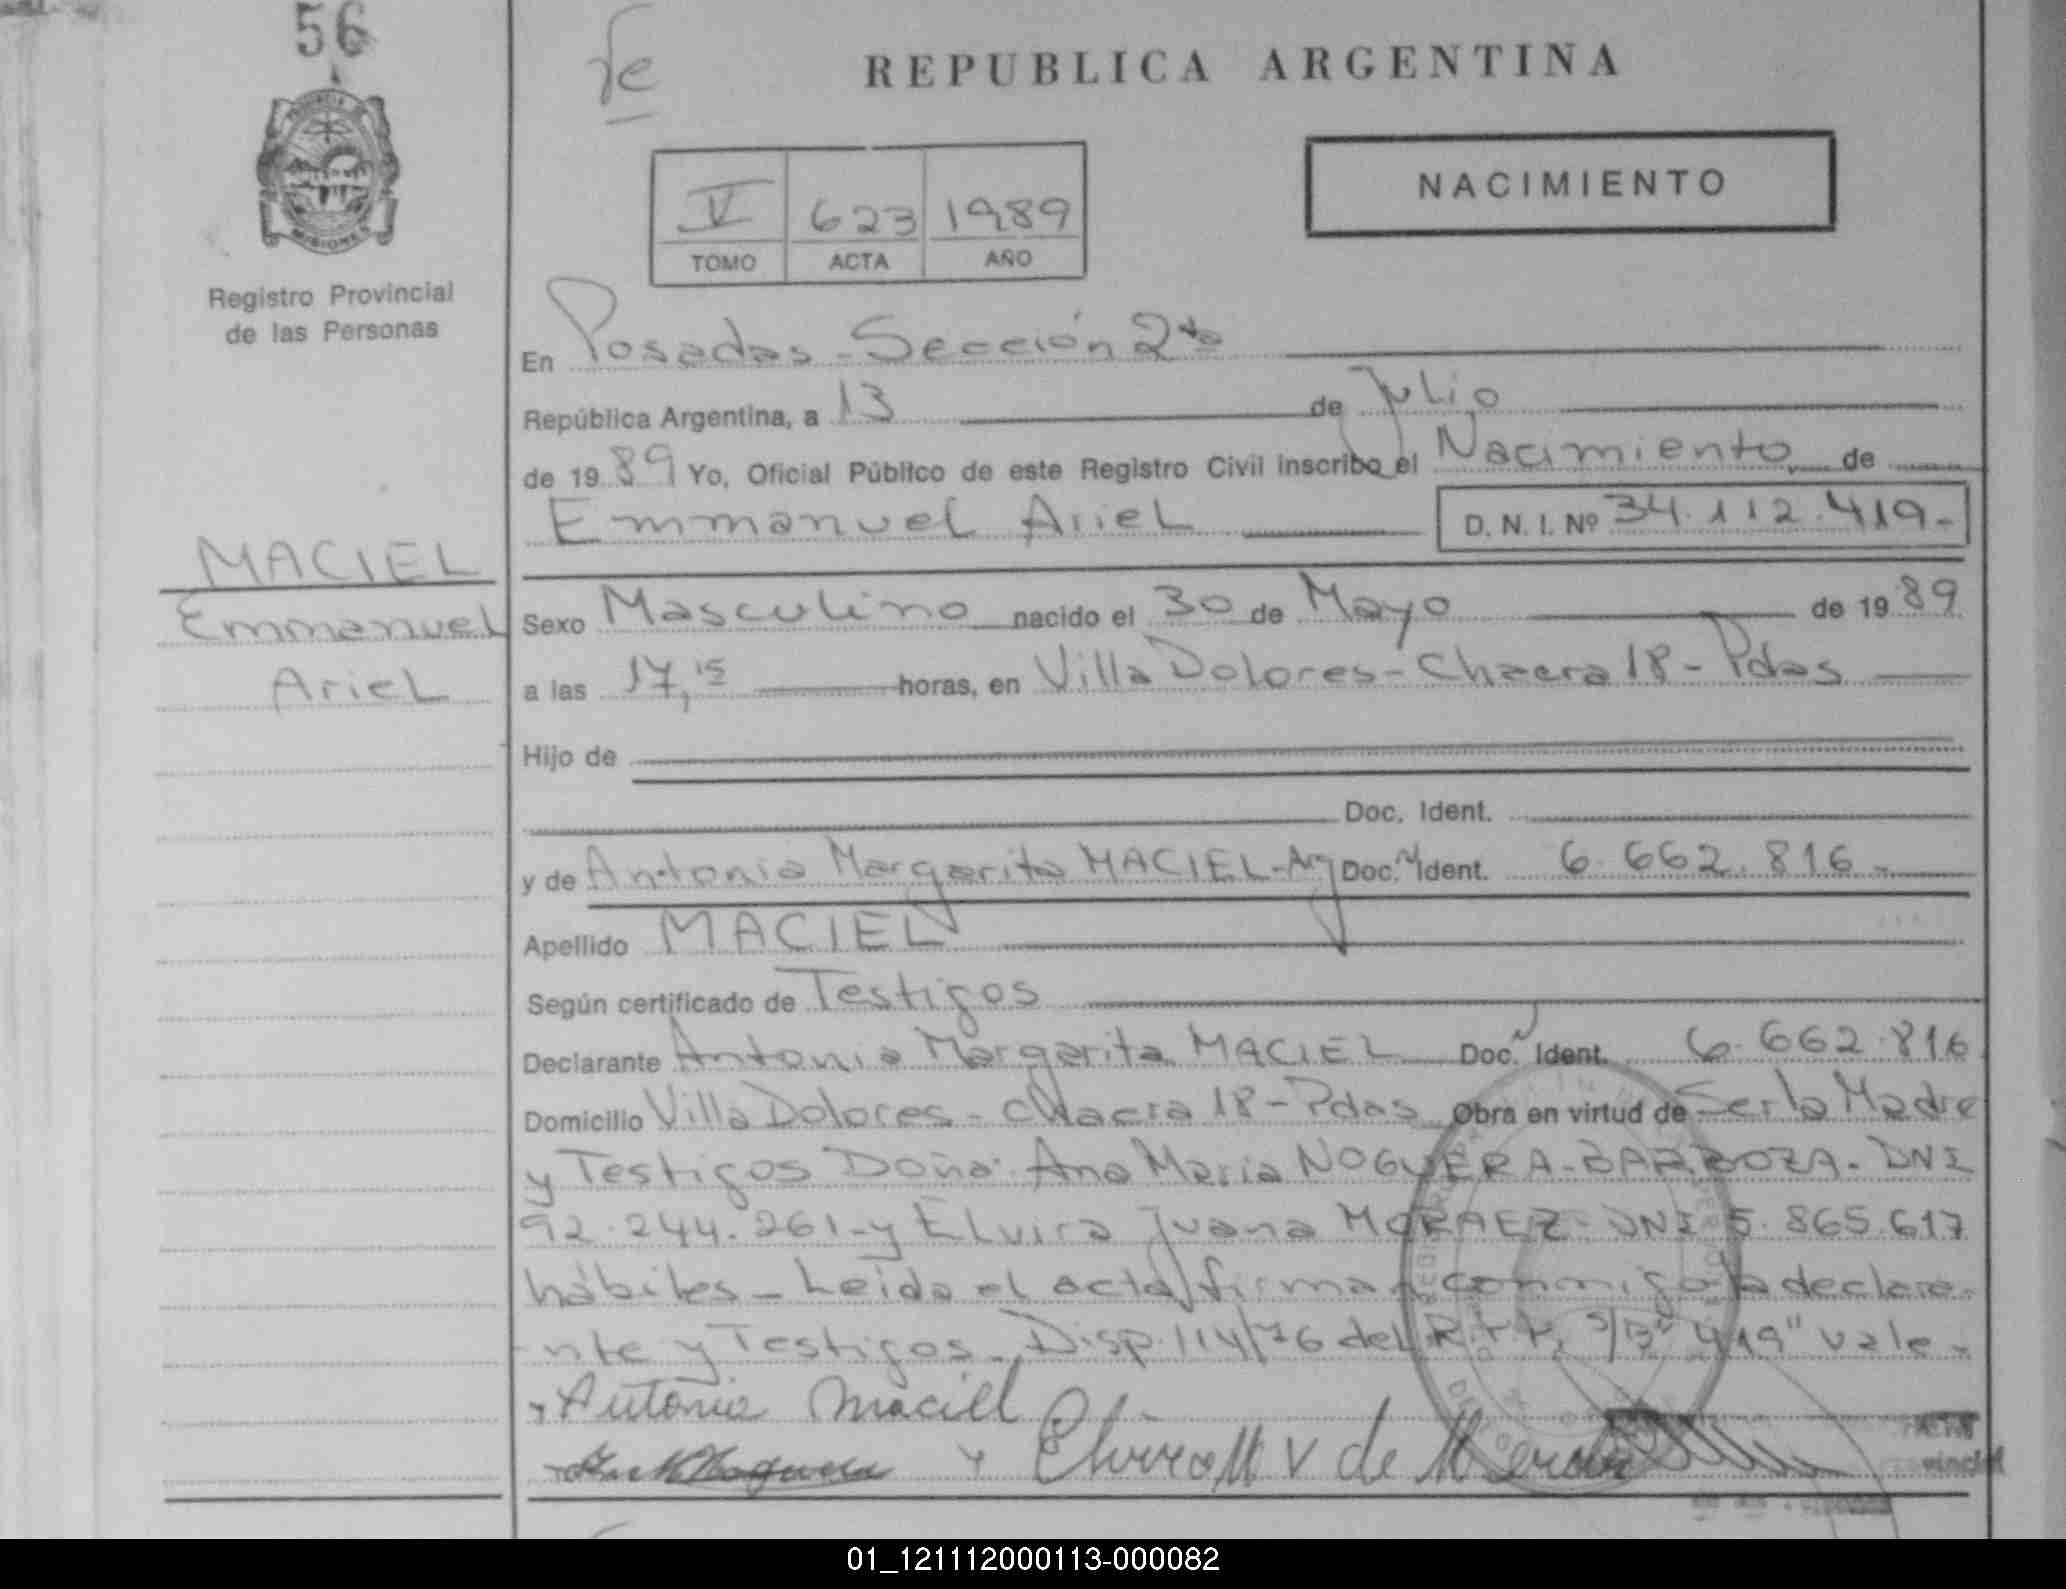 56
REPUBLICA ARGENTINA
NACIMIENTO
V 623 1989
TOMO ACTA AÑO
PROVINCIA DE
MISIONES
Registro Provincial
de las Personas
En Posadas - Sección 2da
República Argentina, a 13 de Julio
de 1989 Yo, Oficial Público de este Registro Civil inscribo el Nacimiento de
Emmanuel Ariel D. N. I. Nº 34.112.419-
MACIEL
Emmanuel
Ariel
Sexo Masculino nacido el 30 de Mayo de 1989
a las 17,15 horas, en Villa Dolores - Chacra 18 - Pdas
Hijo de
Doc. Ident.
y de Antonia Margarita MACIEL - Arg Doc. Ident. 6.662.816.-
Apellido MACIEL
Según certificado de Testigos
Declarante Antonia Margarita MACIEL Doc. Ident. 6.662.816
Domicilio Villa Dolores - Chacra 18 - Pdas Obra en virtud de Ser la Madre
y Testigos Doña: Ana Maria NOGUERA - BARBOZA - DNI
92.244.261 - y Elvira Juana DNI 5.865.617
hábiles - Leida el acta firman conmigo la declara-
nte y Testigos - Disp. 114/76 del S/B "419" vale -
Antonia Maciel
Elvira M V de
01_121112000113-000082